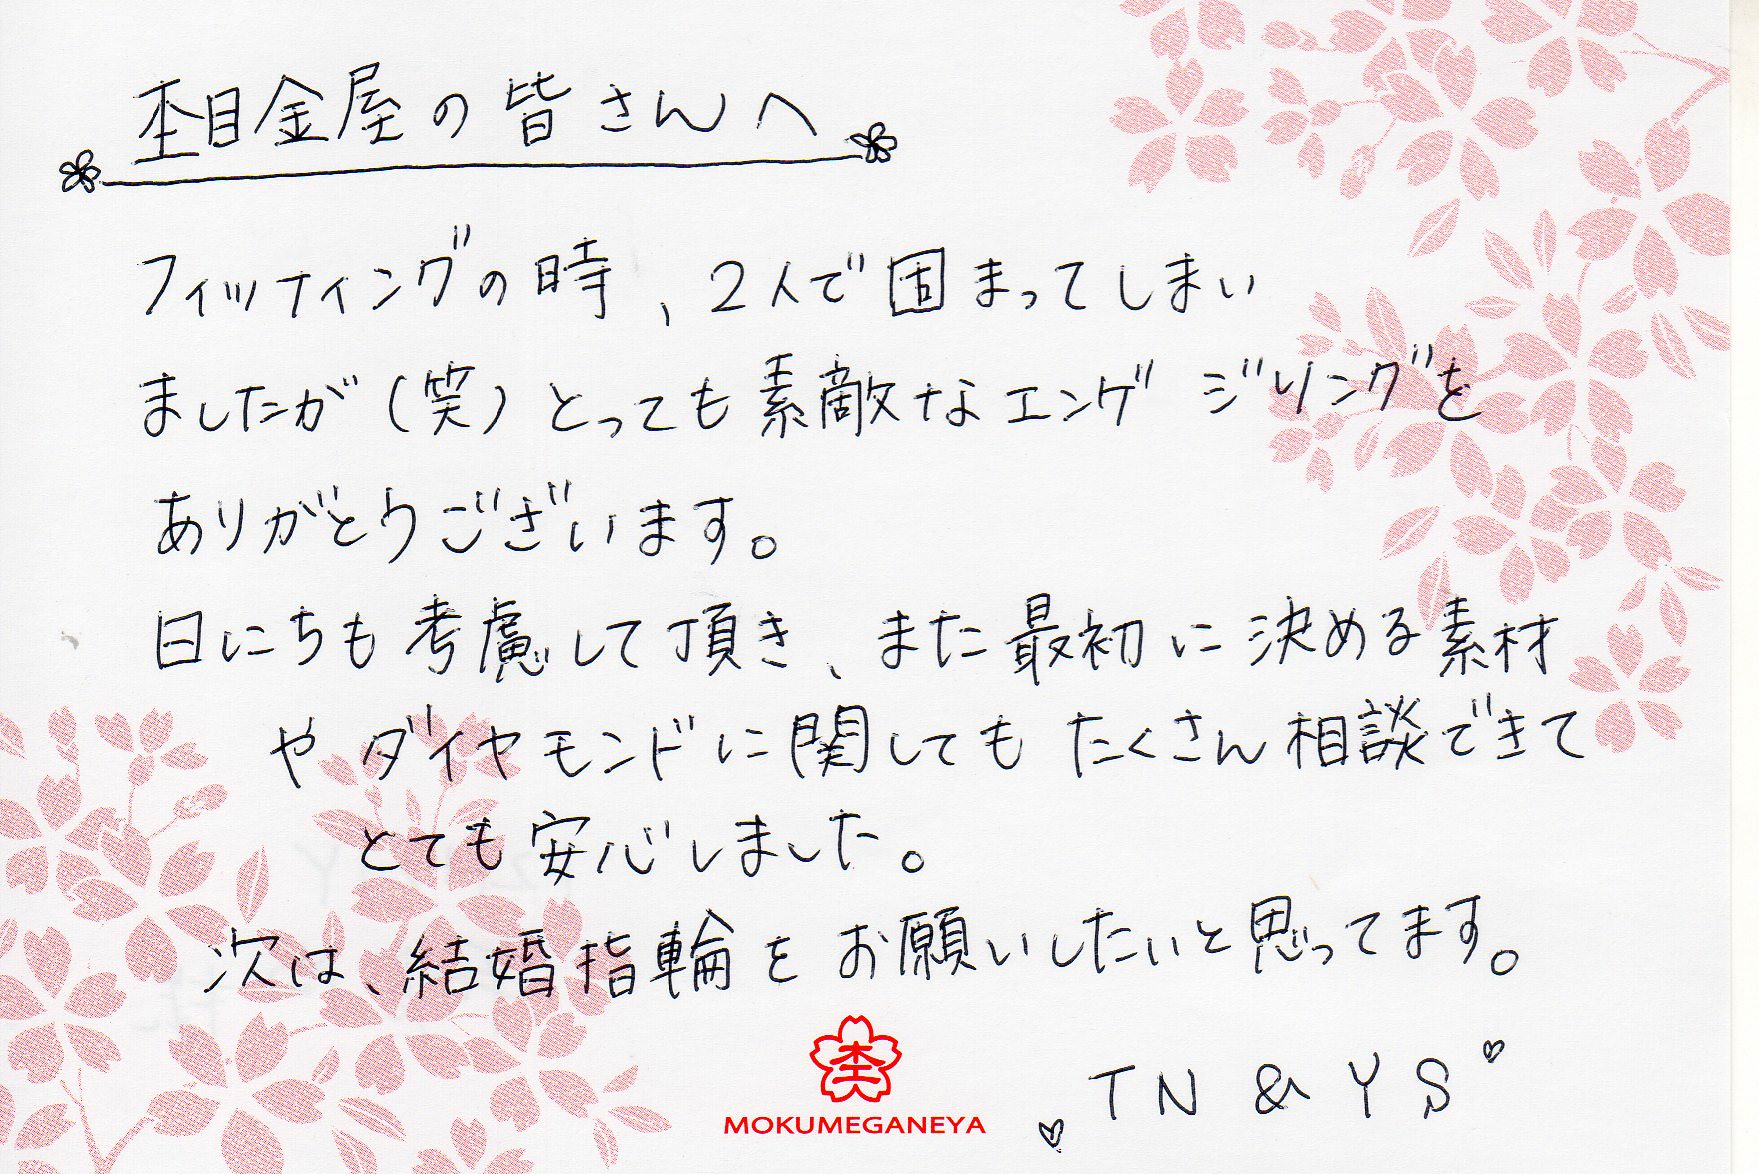 杢目金屋の皆さんへ
フィッティングの時、2人で固まってしまい
ましたが(笑)とっても素敵なエンゲジリングを
ありがとうございます。
日にちも考慮して頂き、また最初に決める素材
やダイヤモンドに関してもたくさん相談できて
とても安心しました。
次は、結婚指輪をお願いしたいと思ってます。
杢目
MOKUMEGANEYA
TN & YS